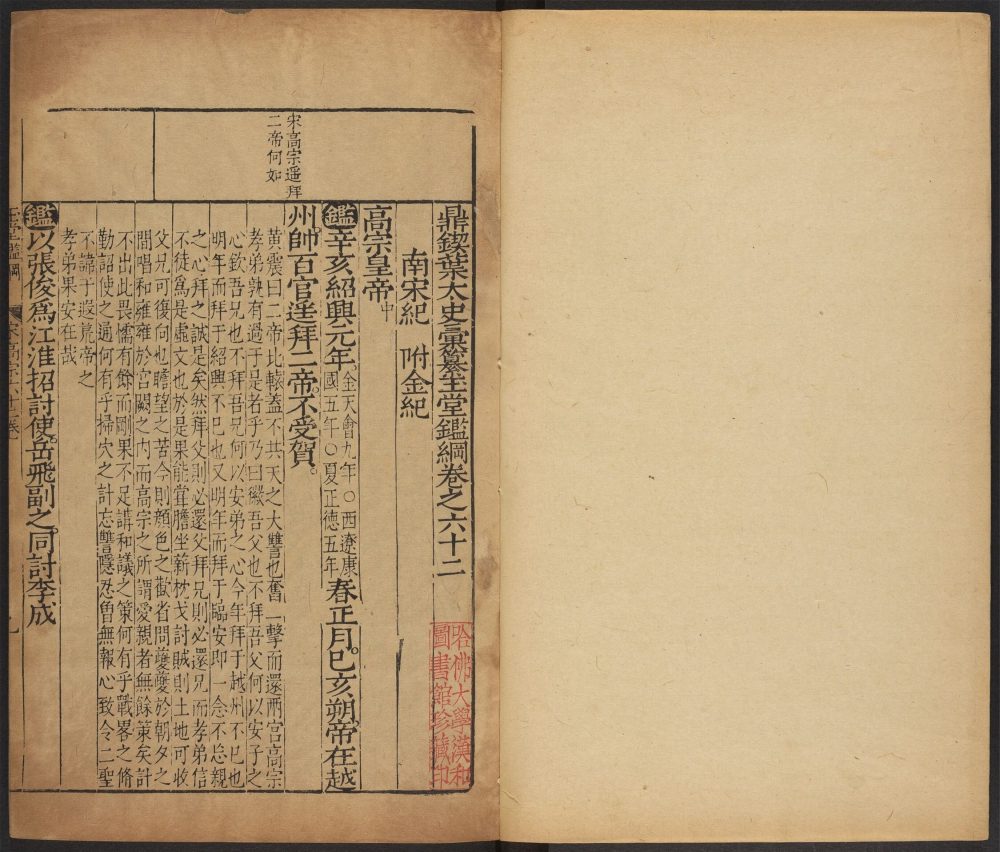 宋高宗遥拜
二帝何如
鼎鍥葉太史彙纂玉堂鑑綱卷之六十二
南宋紀 附金紀
高宗皇帝中
鑑辛亥紹興元年。金天會九年○西遼康
國五年○夏正德五年春正月。己亥朔。帝在越
州。帥百官遥拜二帝。不受賀。
黃震曰二帝比轅蓋不共天之大讐也奮一擊而還兩宮高宗
孝弟孰有過于是者乎乃曰徽吾父也不拜吾父何以安子之
心欽吾兄也不拜吾兄何以安弟之心今年拜于越州不已也
明年而拜于紹興不已也又明年而拜于臨安即一念不忘親
之心拜之誠是矣然拜父則必還父拜兄則必還兄而孝弟信
不徒爲是虛文也於是果能甞膽坐薪枕戈討賊則土地可收
父兄可復向也瞻望之苦今則顔色之歡省問夔夔於朝夕之
間唱和雍雍於宮闕之内而高宗之所謂愛親者無餘策矣計
不出此畏懦有餘而剛果不足講和議之策何有乎戰畧之脩
勤詔使之通何有乎掃穴之計忘讐隱忍曾無報心致令二聖
不諱于遐荒帝之
孝弟果安在哉
鑑以張俊爲江淮招討使。岳飛副之。同討李成
玉堂鑑綱 宋高宗六十二卷 一
哈佛大學漢和
圖書館珍藏印